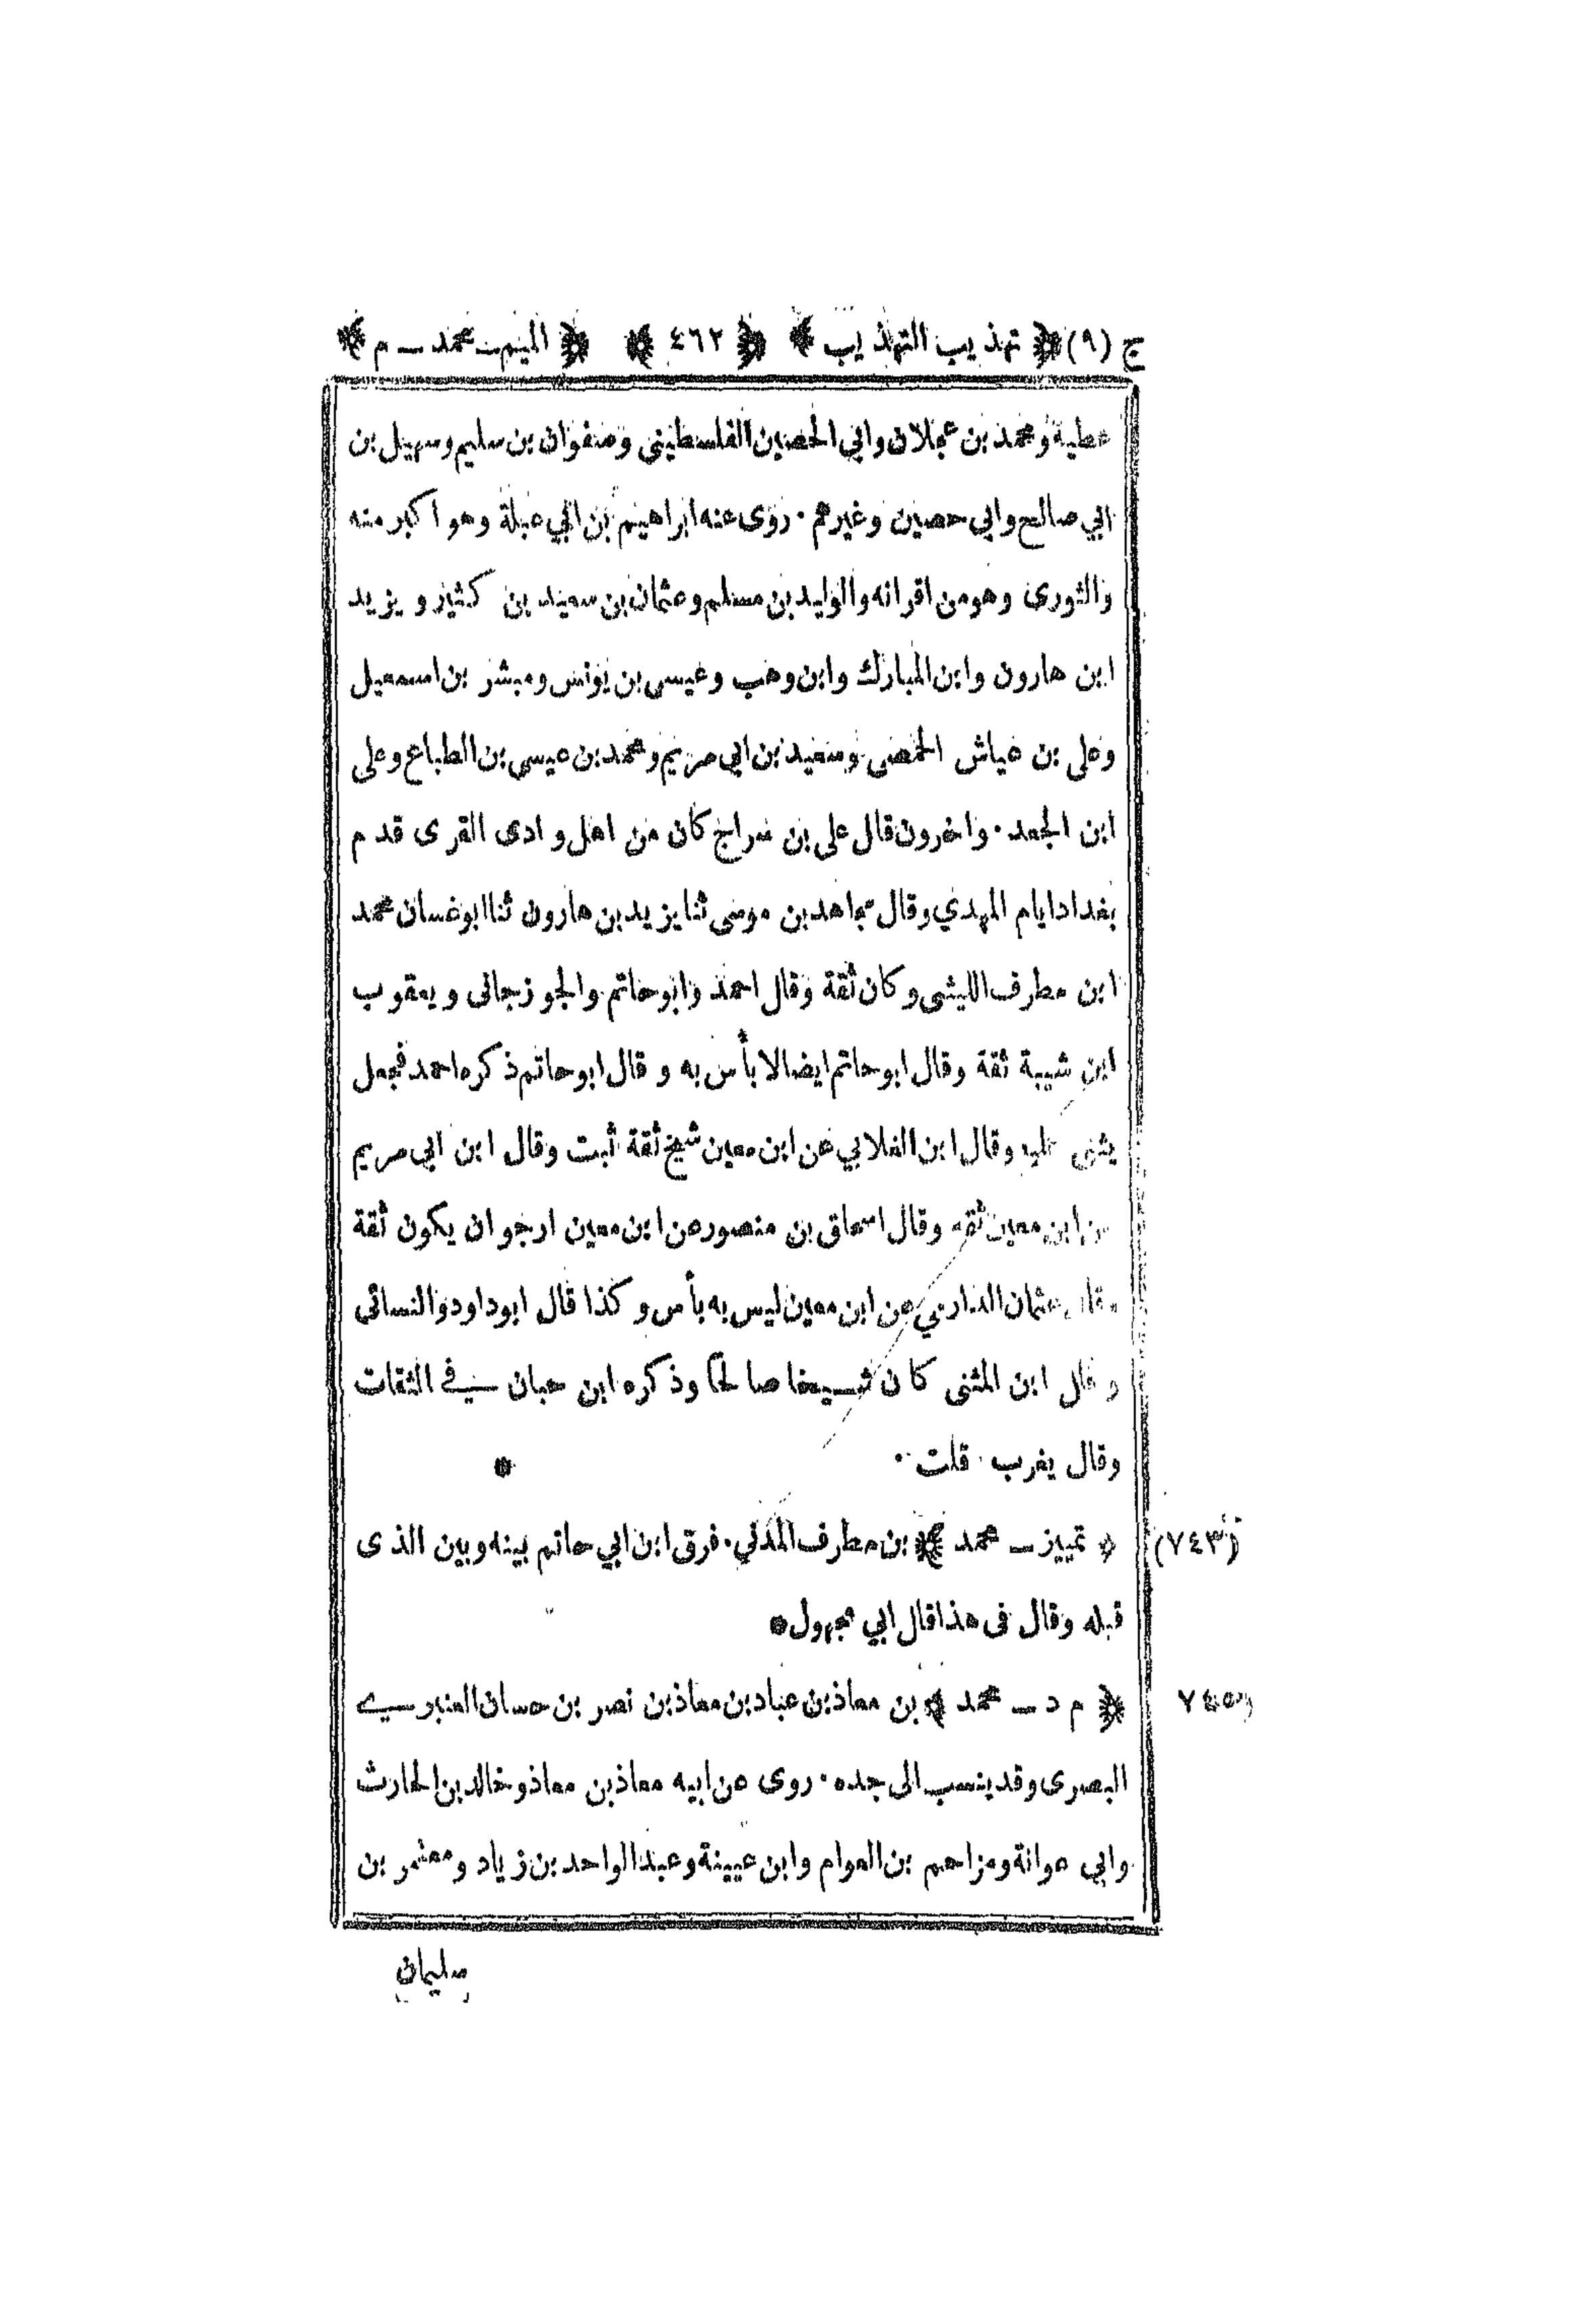 ج (٩) ﴿ تهذيب التهذيب ﴾ ﴿ ٤٦٢ ﴾ ﴿ الميم ـ محمد ـ م ﴾
عطية ومحمد بن عجلان وابي الحصين الفلسطيني وصفوان بن سليم وسهيل بن
ابي صالح وابي حصين وغيرهم . روى عنه ابراهيم بن ابي عبلة وهو اكبر منه
والثورى وهو من اقرانه والوليد بن مسلم وعثمان بن سعيد بن كثير ويزيد
ابن هارون وابن المبارك وابن وهب وعيسى بن يونس ومبشر بن اسمعيل
وعلى بن عياش الحمصى وسعيد بن ابي مريم ومحمد بن عيسى بن الطباع وعلى
ابن الجعد . واخرون قال على بن سراج كان من اهل وادى القرى قدم
بغداد ايام المهدي وقال مجاهد بن موسى ثنا يزيد بن هارون ثنا ابو غسان محمد
ابن مطرف الليثى وكان ثقة وقال احمد وابو حاتم والجوزجانى ويعقوب
ابن شيبة ثقة وقال ابو حاتم ايضا لا بأس به وقال ابو حاتم ذكره احمد فجعل
يثنى عليه وقال ابن الغلابي عن ابن معين شيخ ثقة ثبت وقال ابن ابي مريم
عن ابن معين ثقه وقال اسحاق بن منصور عن ابن معين ارجو ان يكون ثقة
وقال عثمان الدارمي عن ابن معين ليس به بأس وكذا قال ابو داود والنسائى
وقال ابن المثنى كان شيخا صالحا وذكره ابن حبان في الثقات
وقال يغرب . قلت .
﴿ تمييز ـ محمد ﴾ بن مطرف المدني . فرق ابن ابي حاتم بينه وبين الذى (٧٤٣)
قبله وقال فى هذا قال ابي مجهول
﴿ م د ـ محمد ﴾ بن معاذ بن عباد بن معاذ بن نصر بن حسان العنبري
البصرى وقد ينسب الى جده . روى عن ابيه معاذ بن معاذ وخالد بن الحارث
وابي عوانة ومزاحم بن العوام وابن عيينة وعبد الواحد بن زياد ومعتمر بن
سليمان